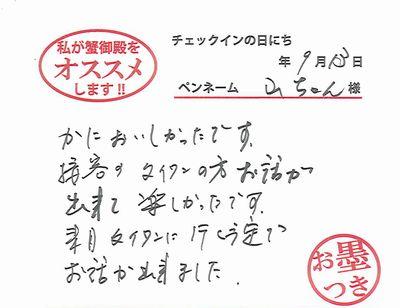 私が蟹御殿を
オススメ
します!!
チェックインの日にち
年 9月 日
ペンネーム 山ちゃん 様
かにおいしかったです。
接客の タイワンの方 お話が
出来て 楽しかったです。
来月 タイワンに 行く予定で
お話が出来ました。
お墨
つき